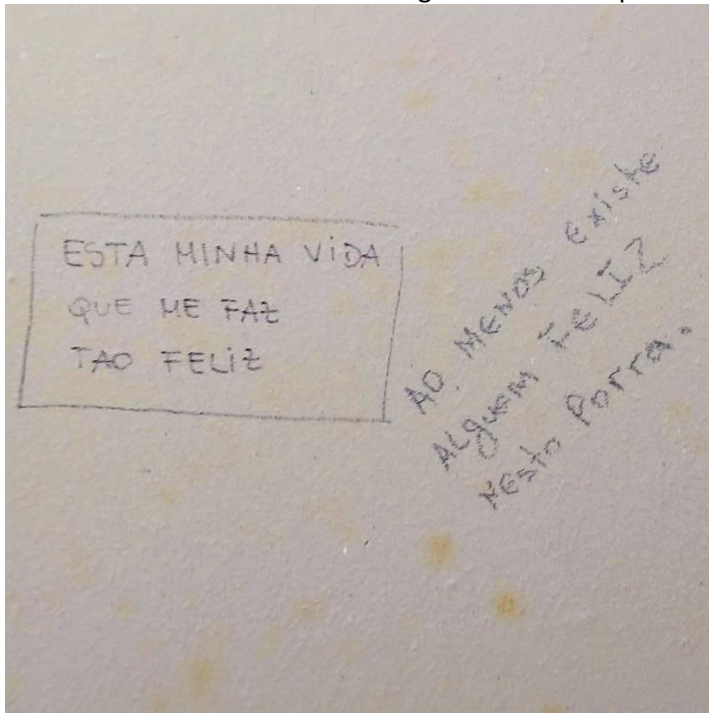 ESTA MINHA VIDA
QUE ME FAZ
TAO FELIZ
AO MENOS EXiste
ALguem FELIZ
NESTA PORRA.